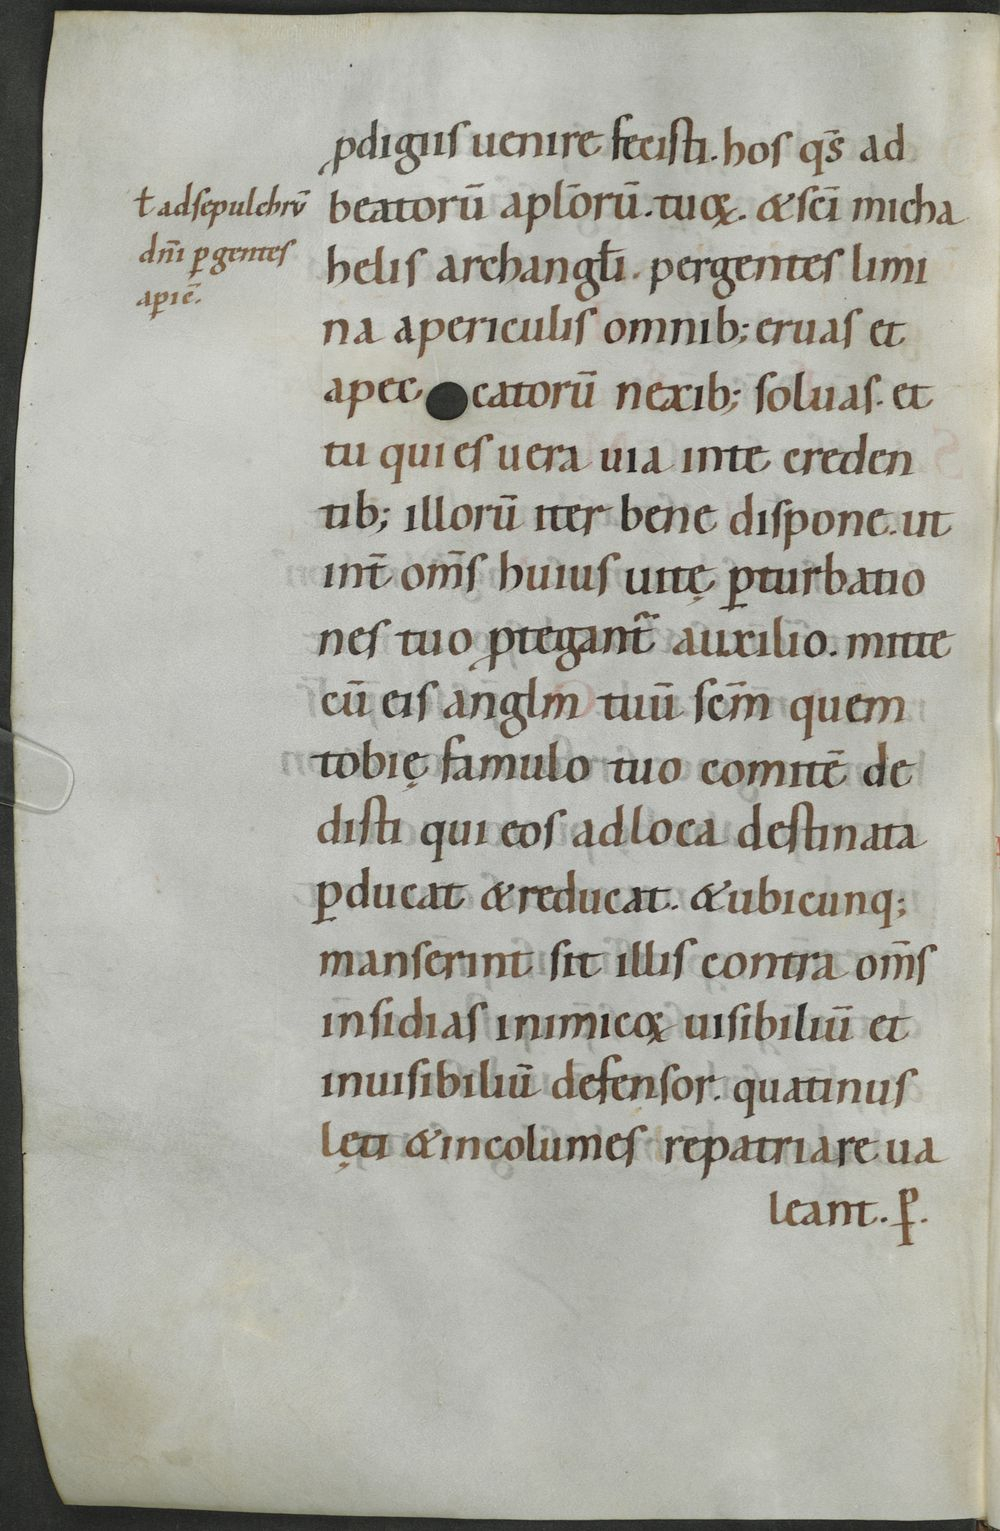 ꝓdigiis uenire fecisti. hos qs̄ ad
ƚ ad sepulchrū
dn̄i ꝑgentes
a pie᷒.
beatorū apl̄orū. tuoꝝ. & sc̄i micha
helis archangl̄i. pergentes limi
na a periculis omnib; eruas et
a pec catorū nexib; soluas. et
tu qui es uera uia in te creden
tib; illorū iter bene dispone. ut
int̄ om̄s huius uitę ꝑturbatio
nes tuo ꝓtegant᷑ auxilio. mitte
cū eis anglm tuū sc̄m quem
tobię famulo tuo comitē de
disti qui eos ad loca destinata
ꝑducat & reducat. & ubicunq;
manserint sit illis contra om̄s
insidias inimicoꝝ uisibiliū et
inuisibiliū defensor. quatinus
lęti & incolumes repatriare ua
leant. ꝑ.